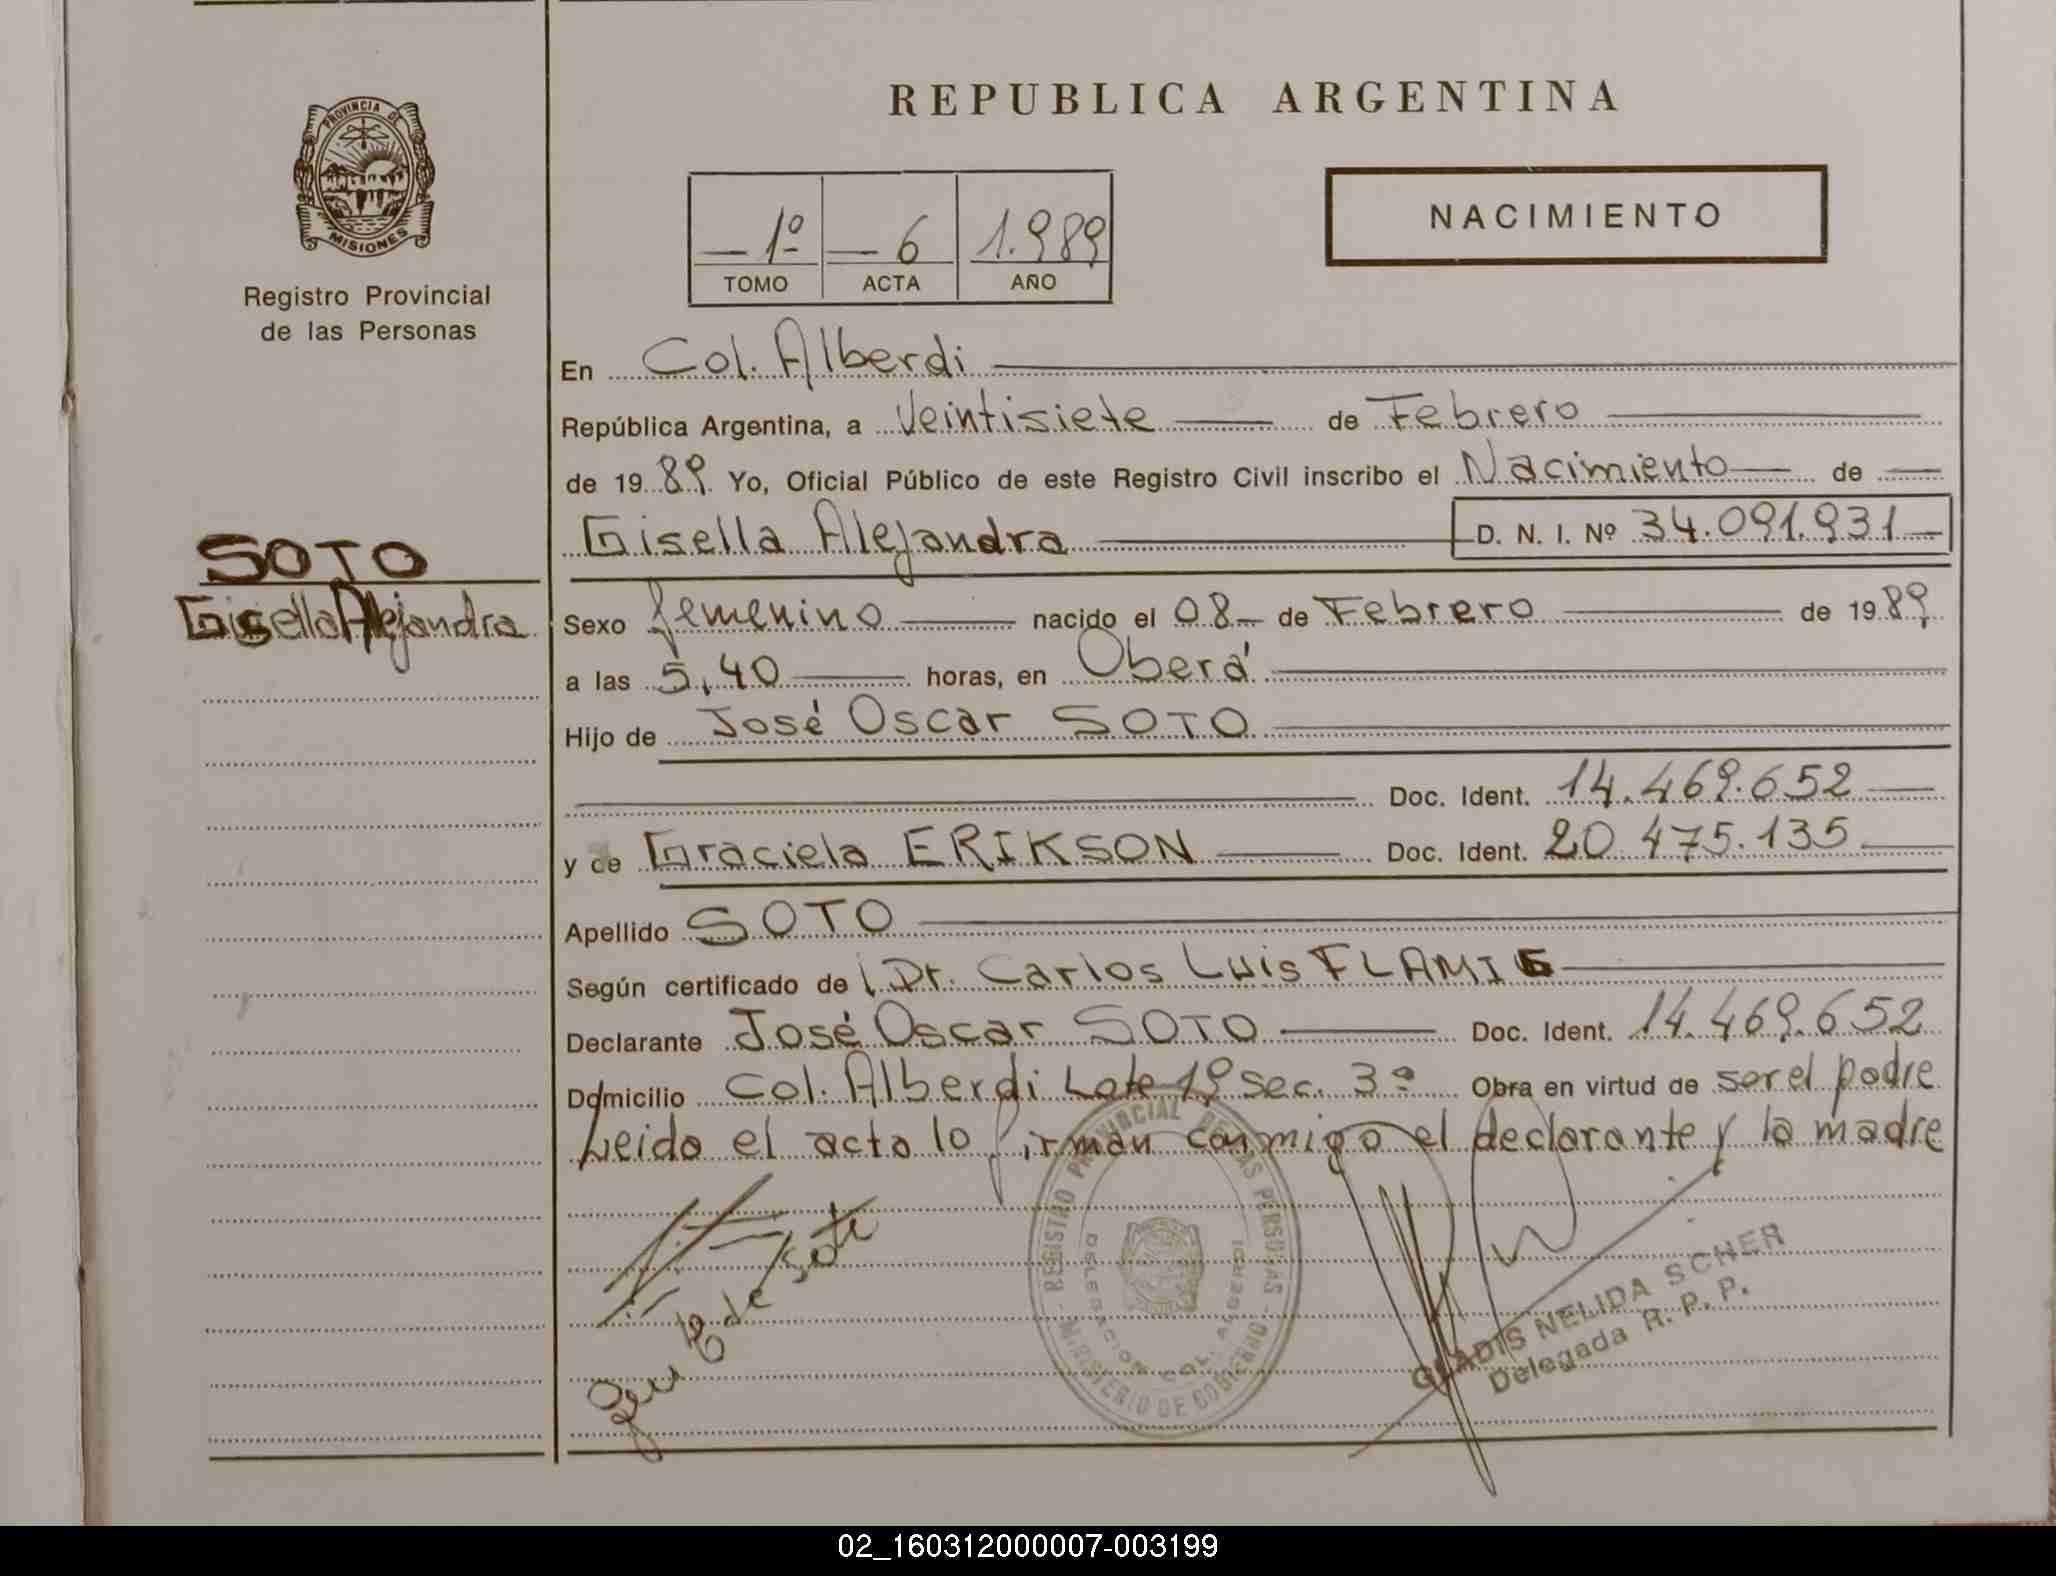 REPUBLICA ARGENTINA
PROVINCIA DE
MISIONES
Registro Provincial
de las Personas
NACIMIENTO
— 1º — 6 1.989
TOMO ACTA AÑO
En Col. Alberdi
República Argentina, a Veintisiete de Febrero
de 19 89 Yo, Oficial Público de este Registro Civil inscribo el Nacimiento de
Gisella Alejandra D. N. I. Nº 34.091.931
SOTO
Gisella Alejandra
Sexo femenino nacido el 08 de Febrero de 19 89
a las 5,40 horas, en Oberá
Hijo de José Oscar SOTO
Doc. Ident. 14.469.652
y de Graciela ERIKSON Doc. Ident. 20.475.135
Apellido SOTO
Según certificado de Dr. Carlos Luis
Declarante José Oscar SOTO Doc. Ident. 14.469.652
Domicilio Col. Alberdi Lote 19 sec. 3ª Obra en virtud de ser el padre
Leido el acta lo firman conmigo el declarante y la madre
REGISTRO PROVINCIAL DE LAS PERSONAS
DELEGACION COL. ALBERDI
MINISTERIO DE GOBIERNO
de Soto
GLADIS NELIDA SCHER
Delegada R. P. P.
02_160312000007-003199